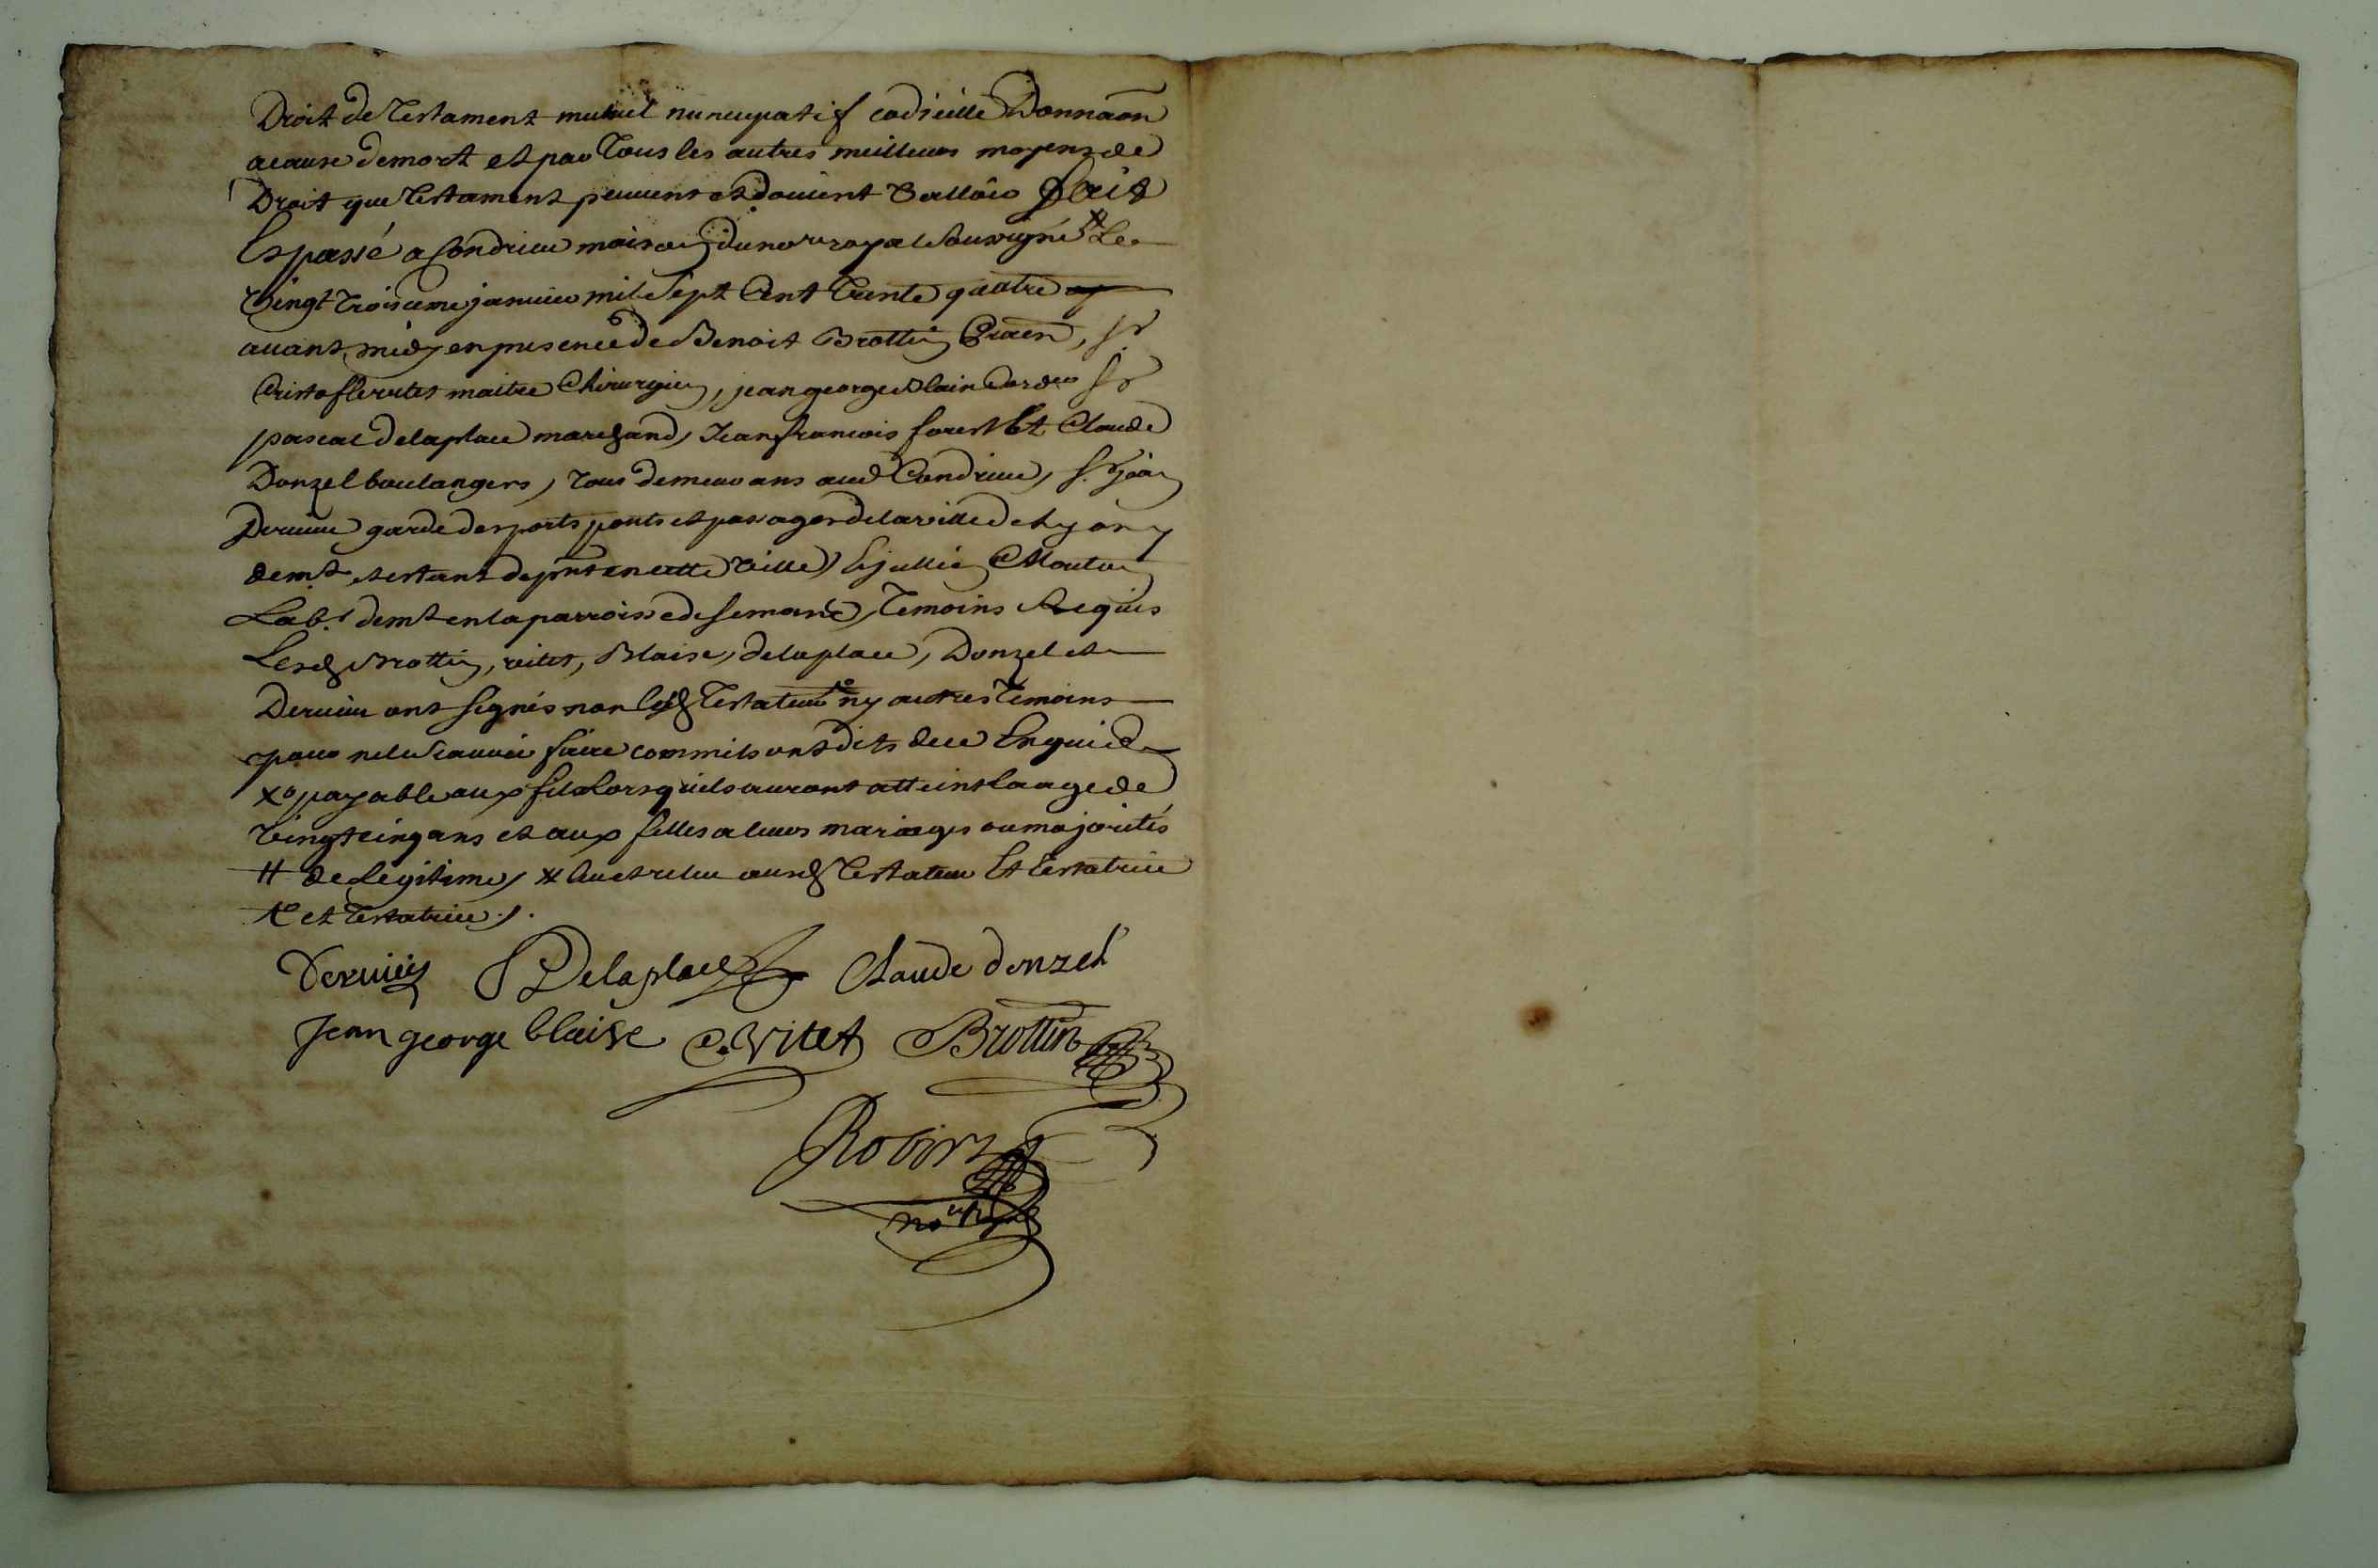 Droit de Testament mutuel nuncupatif codicille Donnaôn
acause demort et par Tous les autres meilleurs moyens de
Droit que Testament peuuent et doiuent Valloir fait
Et passé a Condrieu maison du nore royal Sousigné # Le
Vingt troisieme januier mil Sept Cent Trente quatre
auant midy en presence de Benoit Brottin, Sr
Cristofle vitet maitre Chirurgien, jean george Blaise Sr
pascal Delaplace marchand, Jean francois forest Et Claude
Donzel boulangers, Tous demeurans aud Condrieu, Sr jean
Deruieu garde des ports ponts et passages de la ville de Lyon y
demt, et estant de pnt en cette ville, Et jullien Mouton
Labr demt en la parroisse de Semons, Temoins Requis
Lesd Brottin, vitet, Blaise, delaplace, Donzel et
Deruieu ont signés non led Testateur ny autres Temoins
pour ne le Scauoir faire comm ils ont dits de ce Enquis
xo payable aux fils lors quils auront atteint laage de
Vingt cinq ans et aux filles a leurs mariages ou majorités
# de Legitime, # leu et releu ausd Testateur Et Testatrice
et Testatrice ./.
Deruieu Delaplace Claude donzel
Jean george blaise C. Vitet Brottin
Robin
nore royal